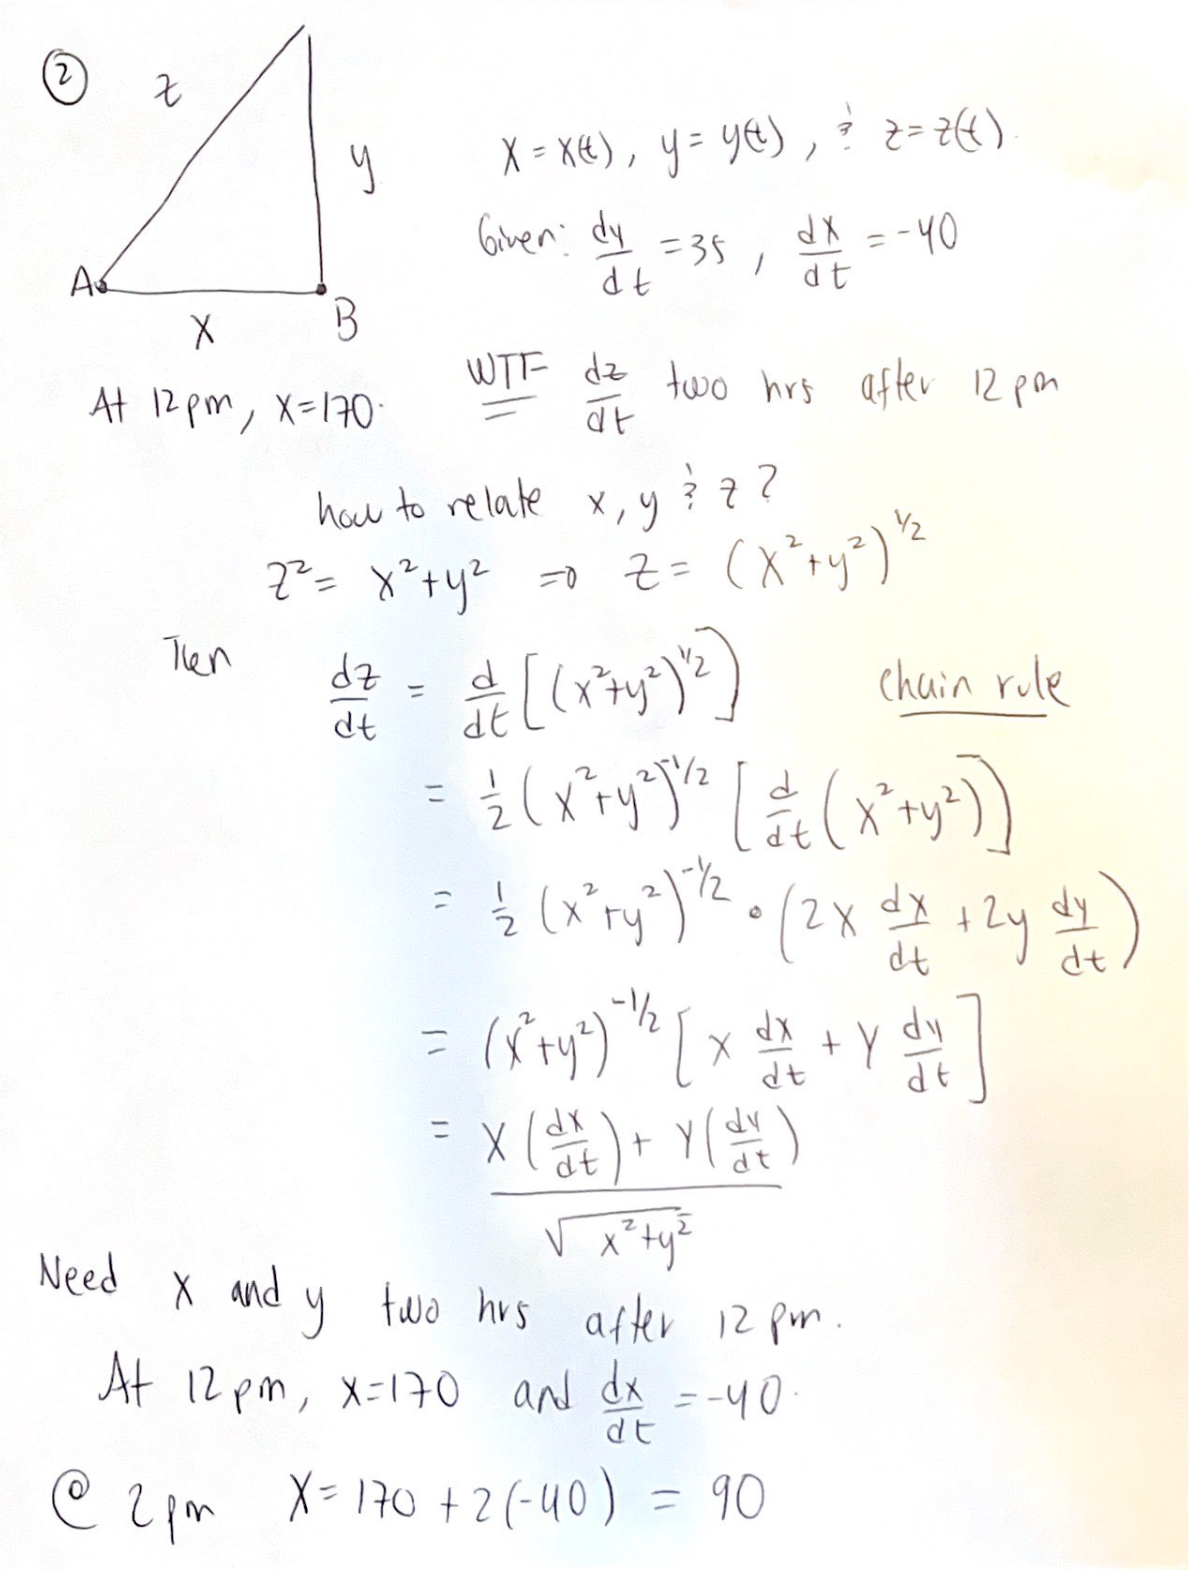 ② z
y
x = x(t), y = y(t), & z = z(t).
Given: dy/dt = 35, dx/dt = -40
A B
x
At 12pm, x=170.
WTF dz/dt two hrs after 12 pm
how to relate x, y & z?
z² = x²+y² ⇒ z = (x²+y²)^1/2
Then dz/dt = d/dt [(x²+y²)^1/2] chain rule
= 1/2 (x²+y²)^-1/2 [d/dt (x²+y²)]
= 1/2 (x²+y²)^-1/2 • (2x dx/dt + 2y dy/dt)
= (x²+y²)^-1/2 [x dx/dt + y dy/dt]
= x(dx/dt) + y(dy/dt)
√x²+y²
Need x and y two hrs after 12 pm.
At 12pm, x=170 and dx/dt = -40.
@ 2pm x = 170 + 2(-40) = 90